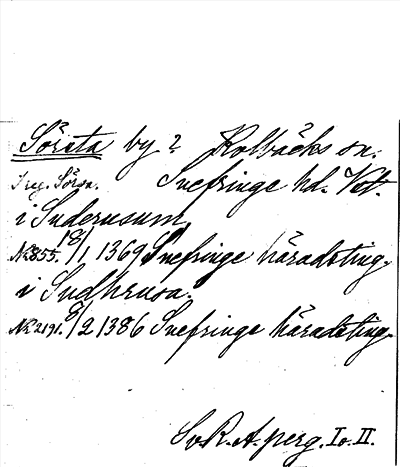 Sörsta by? Kolbäcks sn.
I reg. Sörsa. Snefringe hd. Vstl.
i Suderusum
No 855. 18/1 1369 Snefringe häradsting.
i Sudhrusa.
No 2191. 8/2 1386 Snefringe häradsting.
Sv. R. A. perg. I o. II.